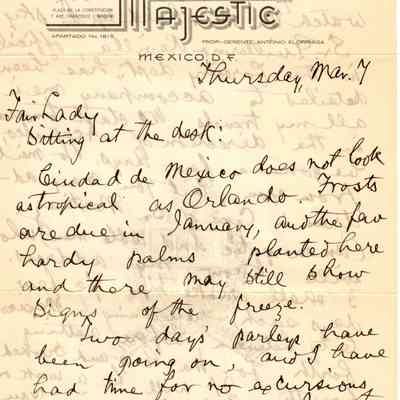 PLAZA DE LA CONSTITUCION
Y AVE. FRANCISCO I. MADERO
APARTADO No. 1815
MAJESTIC
PROP.-GERENTE, ANTONIO ELORRIAGA
MEXICO, D. F.
Thursday, Mar. 7
Fair Lady
Sitting at the desk:
Ciudad de Mexico does not look
as tropical as Orlando. Frosts
are due in January, and the few
hardy palms planted here
and there may still show
signs of the freeze.
Two days' parleys have
been going on, and I have
had time for no excursions,